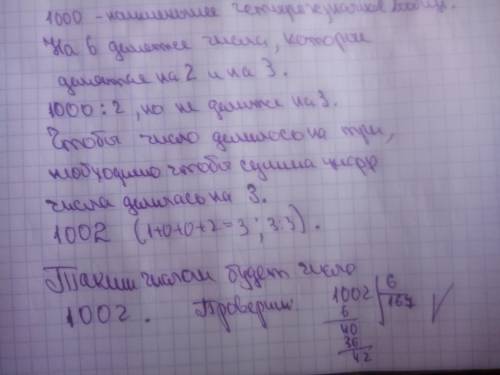 1000 - наименьшее четырёхзначное
На 6 делятся числа, которые
делятся на 2 и на 3.
1000 : 2, но не делится на 3.
Чтобы число делилось на три,
необходимо чтобы сумма цифр
числа делилась на 3.
1002 (1+0+0+2=3; 3:3).
Таким числом будет число
1002. Проверим:
1002 6
6 167
40
36
42